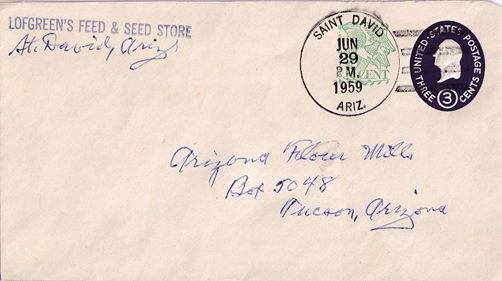 LOFGREEN'S FEED & SEED STORE
St. David, Ariz
SAINT DAVID
JUN
29
P.M.
1959
ARIZ.
CENT
UNITED · STATES · POSTAGE
THREE 3 CENTS
Arizona Flour Mills
Box 5048
Tucson, Arizona